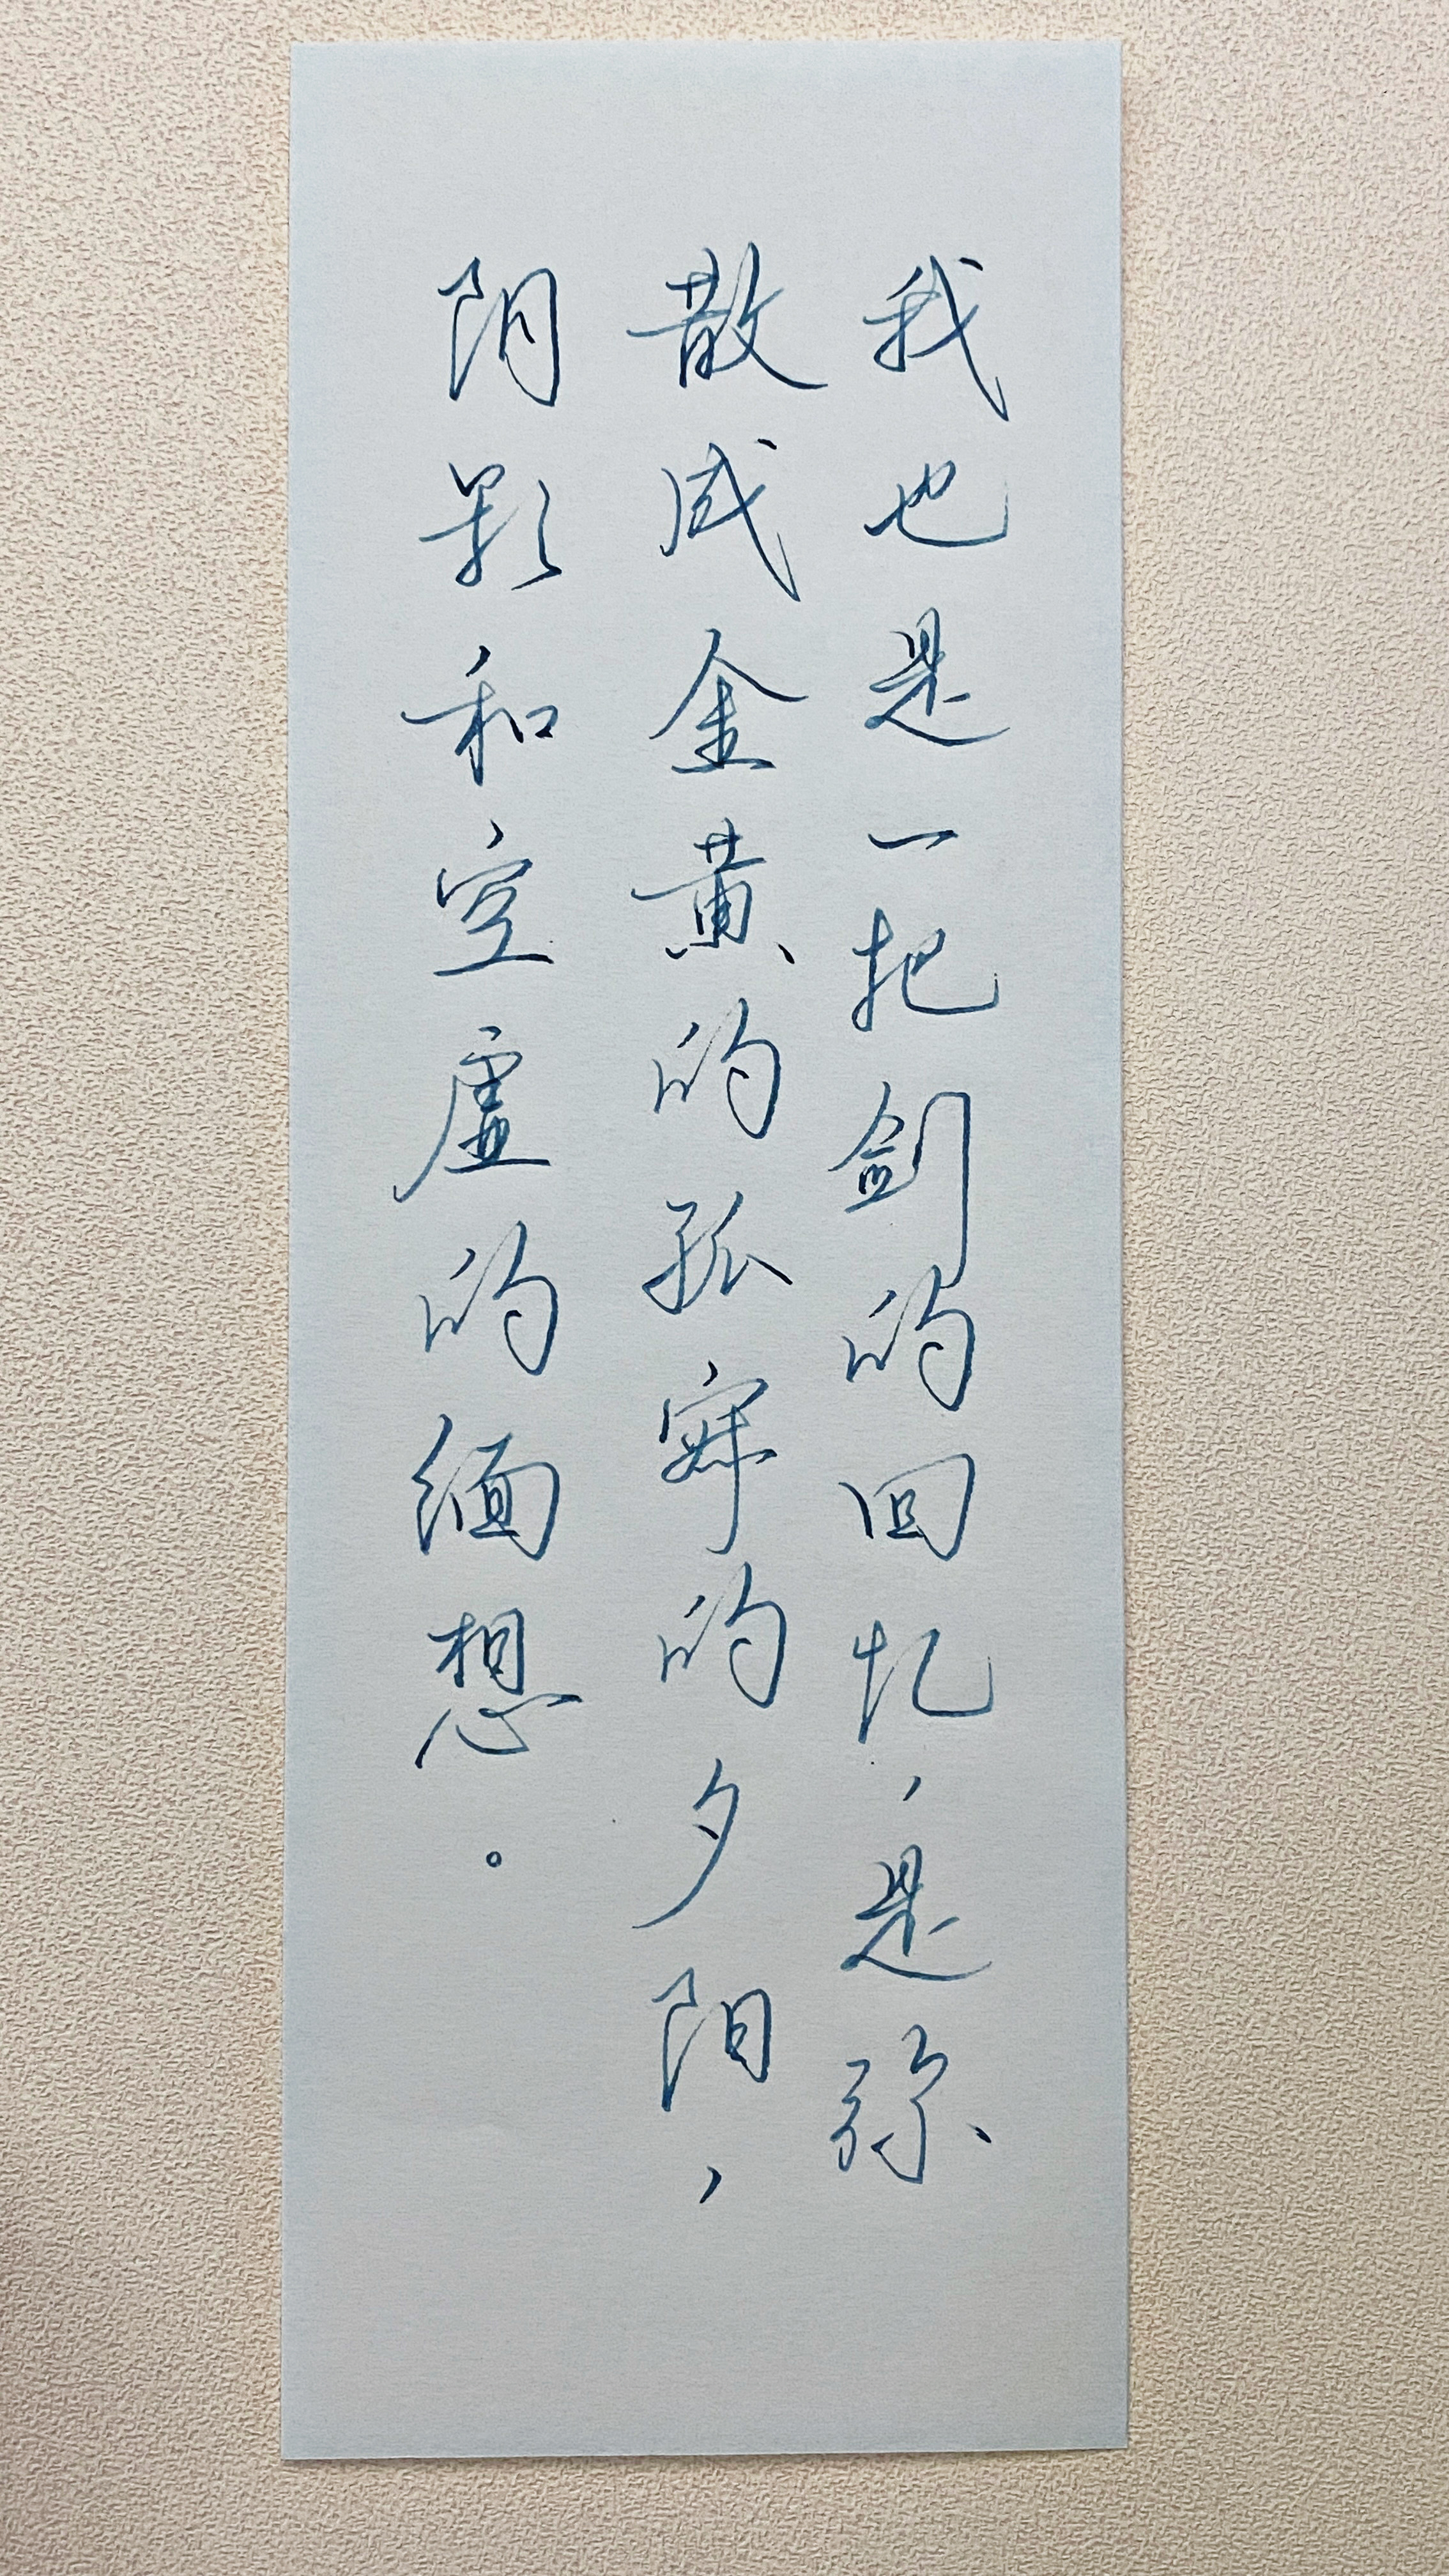 我也是一把剑的回忆，是弥
散成金黄的孤寂的夕阳，
阴影和空虚的缅想。